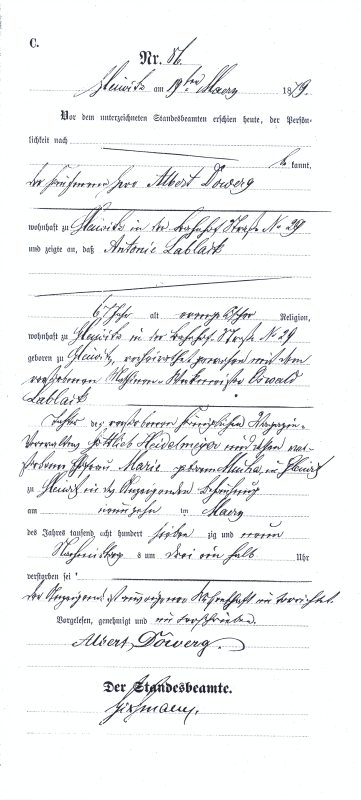 C.
Nr. 86.
Gleiwitz am 19ten Maerz 1879.
Vor dem unterzeichneten Standesbeamten erschien heute, der Persön-
lichkeit nach
be kannt,
der Albert Döwerg
wohnhaft zu Gleiwitz in der Bahnhof Straße No 29
und zeigte an, daß Antonie Lablack
67 Jahr alt evangelischer Religion,
wohnhaft zu Gleiwitz in der Bahnhof Straße No 29
geboren zu Gleiwitz, verheirathet gewesen mit dem
verstorbenen Oswald
Lablack
Tochter des verstorbenen Königlichen Magazin-
Verwalters Gottlieb Heidelmeyer und dessen ver-
storbenen Ehefrau Marie geborenen in Gleiwitz
zu Gleiwitz in des Anzeigenden Behausung
am neunzehn ten Maerz
des Jahres tausend acht hundert sieben zig und neun
Nachmittag s um drei ein halb Uhr
verstorben sei
der Anzeigende ist aus eigener Wissenschaft unterrichtet.
Vorgelesen, genehmigt und unterschrieben.
Albert Döwerg.
Der Standesbeamte.